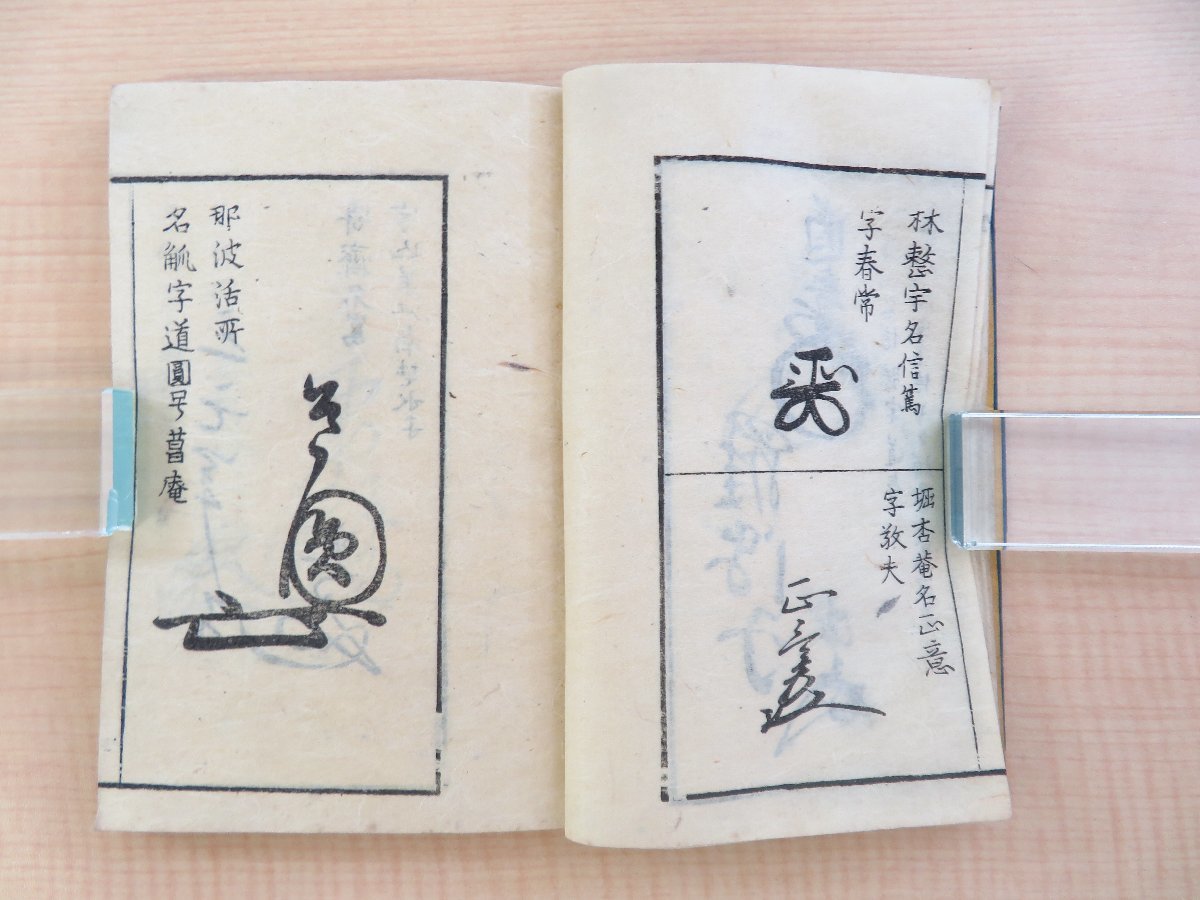 林整宇名信篤
字春常
堀杏菴名正意
字敬夫
正意
那波活所
名觚字道圓号菖庵